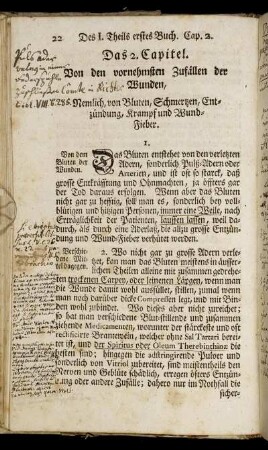 22 Des I. Theils erstes Buch. Cap. 2.
Das 2. Capitel.
Von den vornehmsten Zufällen der
Wunden,
Nemlich, von Bluten, Schmertzen, Ent-
zündung, Krampf und Wund-
Fieber.
1.
Von dem
Bluten der
Wunden.
Das Bluten entstehet von den verletzten
Adern, sonderlich Pulß-Adern oder
Arterien, und ist oft so starck, daß
grosse Entkräfftung und Ohnmachten, ja öfters gar
der Tod daraus erfolgen. Wenn aber das Bluten
nicht gar zu hefftig, soll man es, sonderlich bey voll-
blütigen und hitzigen Personen, immer eine Weile, nach
Erträglichkeit der Patienten, lauffen lassen, weil da-
durch, als durch eine Aderlaß, die allzu grosse Entzün-
dung und Wund-Fieber verhütet werden.
2. Wo nicht gar zu grosse Adern verle-
tzet, kan man das Bluten meistens in äusser-
lichen Theilen alleine mit zusammen gedrehe-
ten trockenen Carpey, oder leinenen Läpgen, wenn man
die Wunde damit wohl ausfüllet, stillen, zumal wenn
man noch darüber dicke Compressen legt, und mit Bin-
den wohl zubindet. Wo dieses aber nicht zureichet;
so hat man verschiedene Blut-stillende und zusammen
ziehende Medicamenten, worunter der stärckeste und oft
rectificirte Brantewein, welcher ohne Sal Tartari berei-
tet ist, und der Spiritus oder Oleum Therebinthinæ die
besten sind; hingegen die adstringirende Pulver und
sonderlich von Vitriol zubereitet, sind meistentheils den
Nerven und Geblüte schädlich, erregen öfters Entzün-
dung oder andere Zufälle; dahero nur im Nothfall die
sicher-